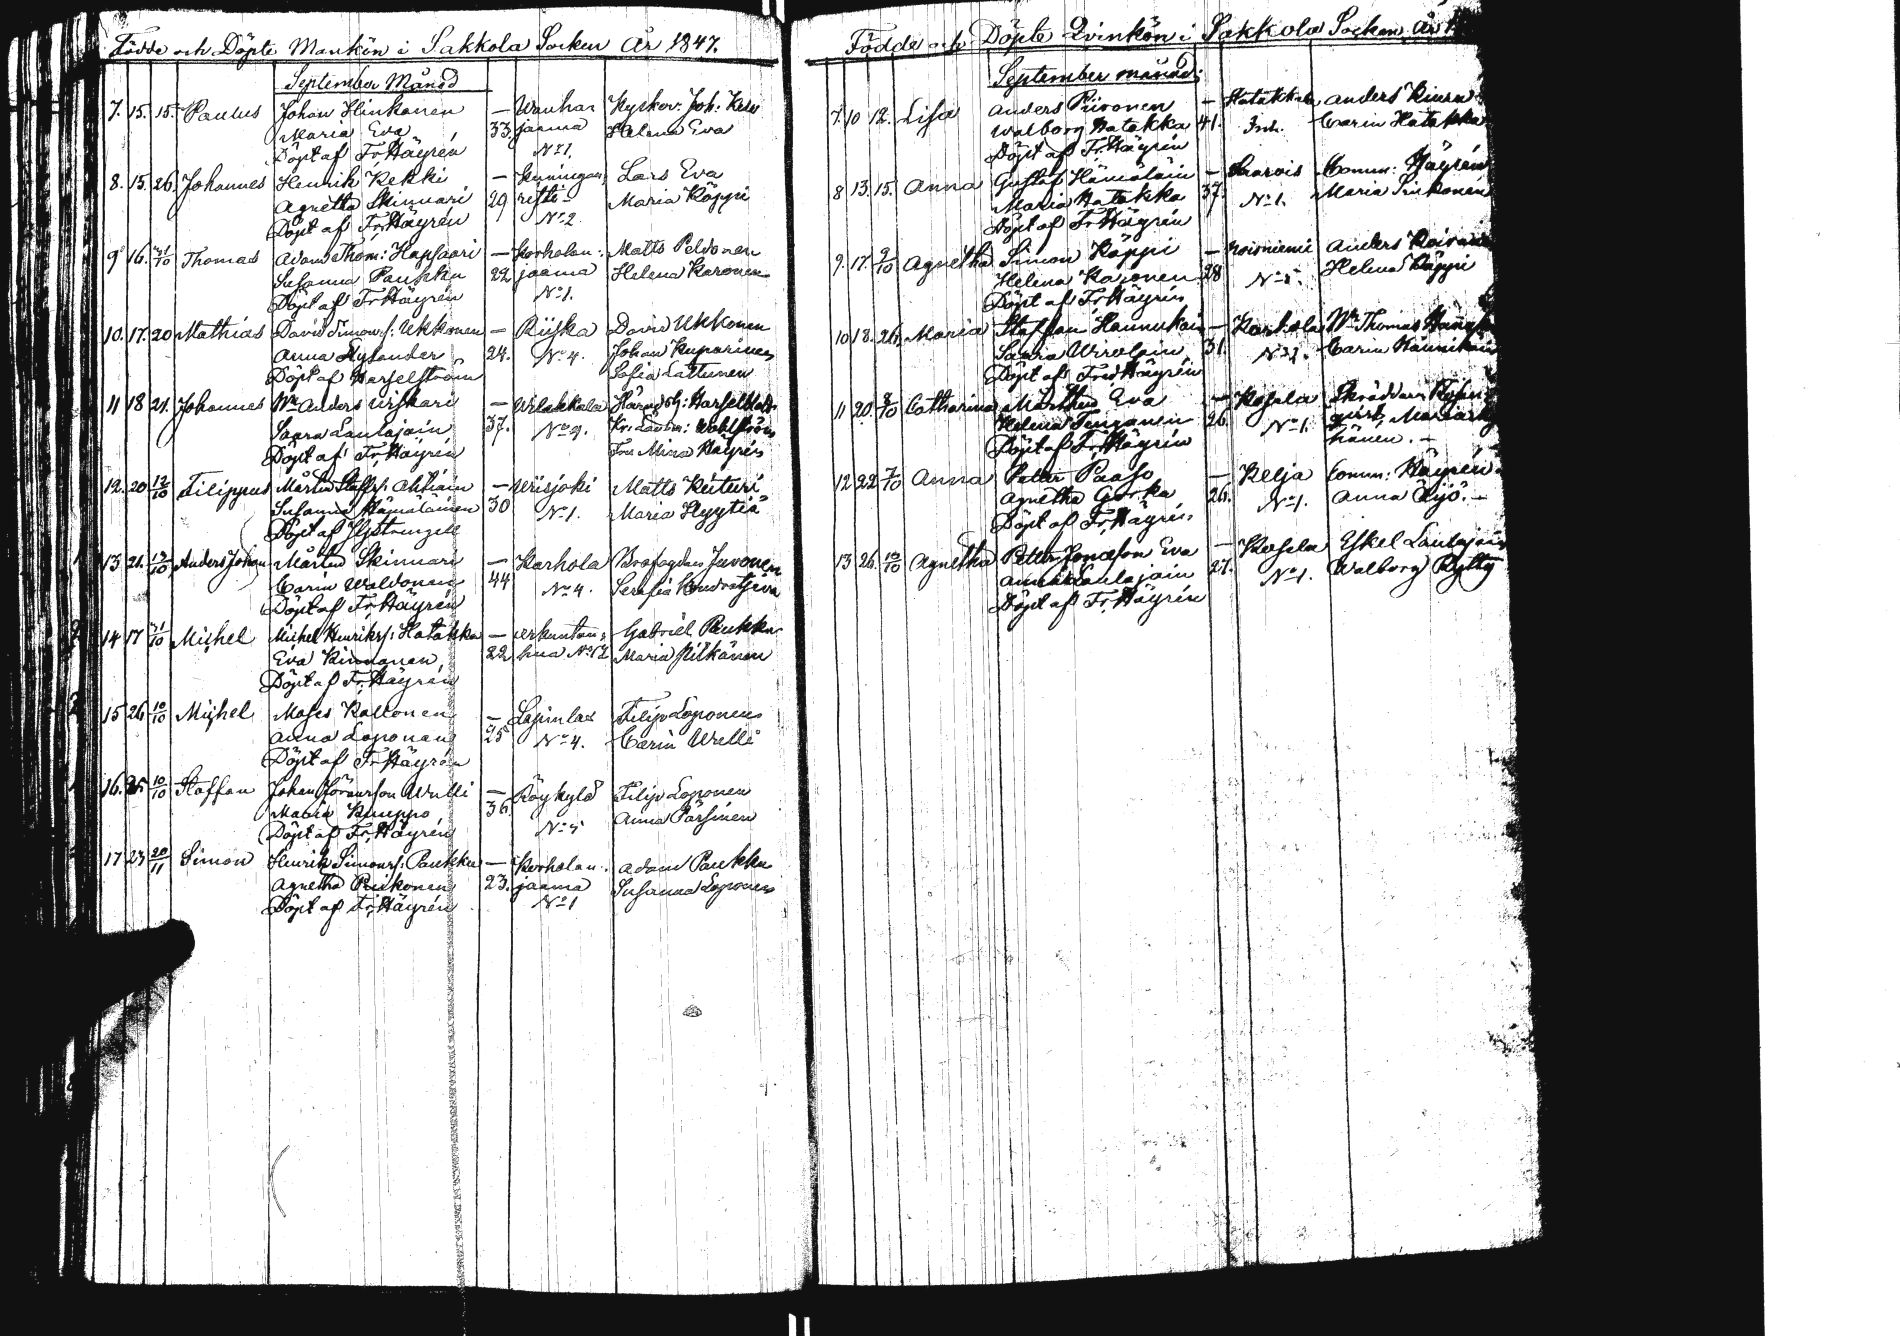 Födde och Döpte Mankön i Sakkola Socken År 1847.
September Månad
7. 15. 15. Paulus Johan Hinkanen — Wanha Kyrkov: Joh:
Maria Eva 33. jaama Helena Eva
Döpt af Fr. Häyrén No 1.
8. 15. 26. Johannes Henrik Kekki — Kuningan Lars Eva
Agnetha Skinnari 29 risti Maria Käppi
Döpt af Fr. Häyrén No 2
9 16. Thomas Adam Thom: Hapsaari — Korholan: Matts Peldonen
Susanna Paukku 22 jaama Helena Karonen
Döpt af Fr. Häyrén No 1.
10. 17. 20 Mathias David Simons: Ukkonen — Riiska David Ukkonen
Anna Nylander 24. No 4. Johan Kuparinen
Döpt af Hasselström Sofia Lattunen
11 18 21. Johannes Anders Wiskari —
Saara Laulajain 37.
Döpt af Fr. Häyrén Mina Häyrén
12. 20 12/10 Filippus Mårten Staffs: Ahtiain — Wiisjoki Matts Kuturi
Susanna Hämäläinen 30 No 1. Maria Hyytiä
Döpt af
13 21. 12/10 Anders Johan Mårten Skinnari — Karhola Juvonen
Carin Waldonen 44 No 4.
Döpt af Fr. Häyrén
14 17 Michel Michel Henriks: Hatakka — Gabriel Paukku
Eva Kinnanen 22 Maria Pitkänen
Döpt af Fr. Häyrén
15 26 10/10 Michel Moses Kaltonen — Lapinlax Filip Loponen
Anna Loponen 25 No 4. Carin Welli
Döpt af Fr. Häyrén
16. 25 10/10 Staffan Johan Göransson Welli — Röykylä Filip Loponen
Maria Kemppo 36. No 5 Anna Pärsinen
Döpt af Fr. Häyrén
17 23 20/11 Simon Henrik Simons: Paukku — Korholan: Adam Paukku
Agnetha Puikonen 23. jaama Susanna Loponen
Döpt af Fr. Häyrén No 1
Födde och Döpte Qvinkön i Sakkola Socken År
September månad:
7. 10 12. Lisa Anders Piironen — Hatakkala Anders
Walborg Hatakka 41. Inh. Carin Hatakka
Döpt af Fr. Häyrén
8 13. 15. Anna Gustaf Hämäläin — Saarois Comm: Häyrén
Maria Hatakka 37. No 1. Maria
Döpt af Fr. Häyrén
9. 17. 9/10 Agnetha Simon Käppi — Anders
Helena Karonen 28 Helena Käppi
Döpt af Fr. Häyrén
10 18. 26. Maria Staffan Hannukain — Karhola Thomas
Saara Wirolain 31. Carin Hannukain
Döpt af Fred Häyrén
11 20. 8/10 Catharina Mårten Eva — Kasela Skräddar
Helena 26. No 1.
Döpt af Fr. Häyrén
12 22 7/10 Anna Petter Paaso — Kelja Comm: Häyrén
Agnetha Gorka 26. No 1. Anna Äijö. —
Döpt af Fr. Häyrén
13 26. 10/10 Agnetha Petter Eva — Kasela Eskel Laulajain
Laulajain 27. No 1. Walborg Pytty
Döpt af Fr. Häyrén